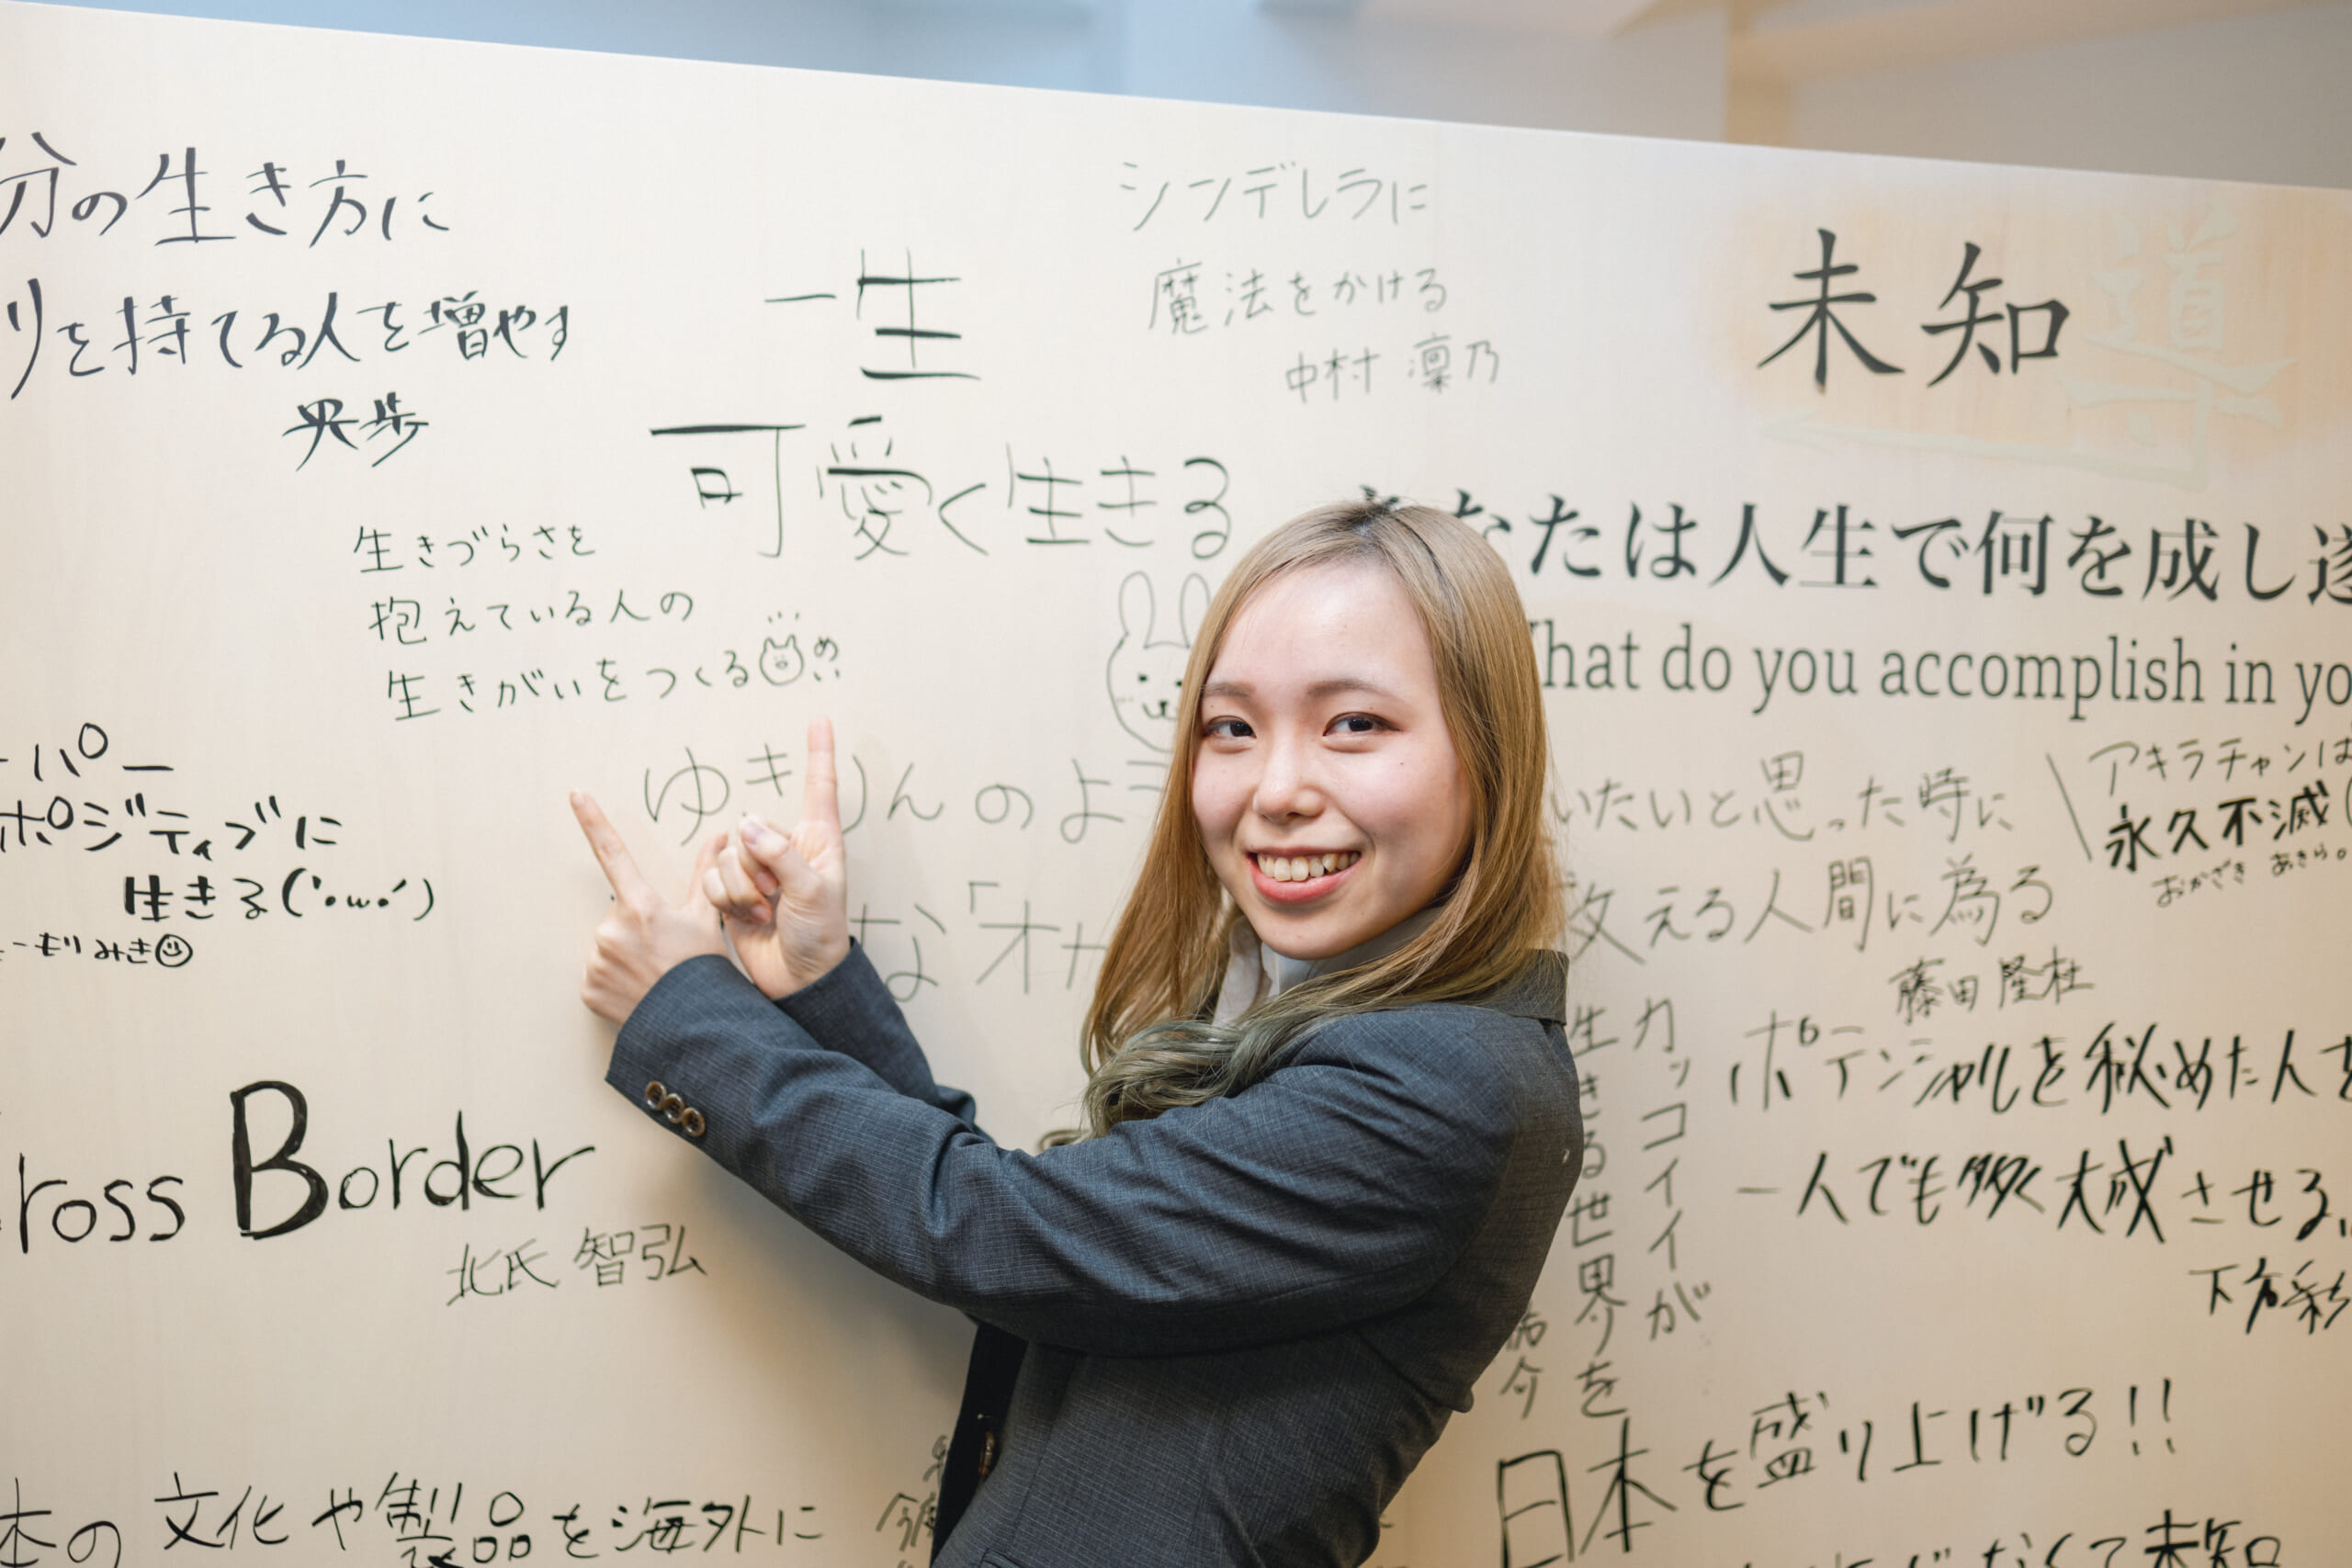 分の生き方に
リを持てる人を増やす
生きづらさを
抱えている人の
生きがいをつくる
め
パー
ポジティブに
生きる('・ω・')
もりみき
ross Border
北氏 智弘
本の文化や製品を海外に
一生
可愛く生きる
シンデレラに
魔法をかける
中村 凛乃
ゆき
んのよう
な「オカ
未知
道
なたは人生で何を成し遂
hat do you accomplish in yo
いたいと思った時に
教える人間に為る
藤田 隆杜
アキラチャンは
永久不滅
おかざき あきら。
カッコイイが
生きる世界を
祐介
ポテンシャルを秘めた人を
一人でも多く大成させる。
日本を盛り上げる!!
なくて未知